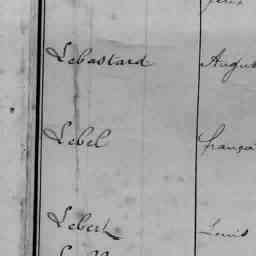 Lebastard Augus
Lebel françoi
Lebert Louis